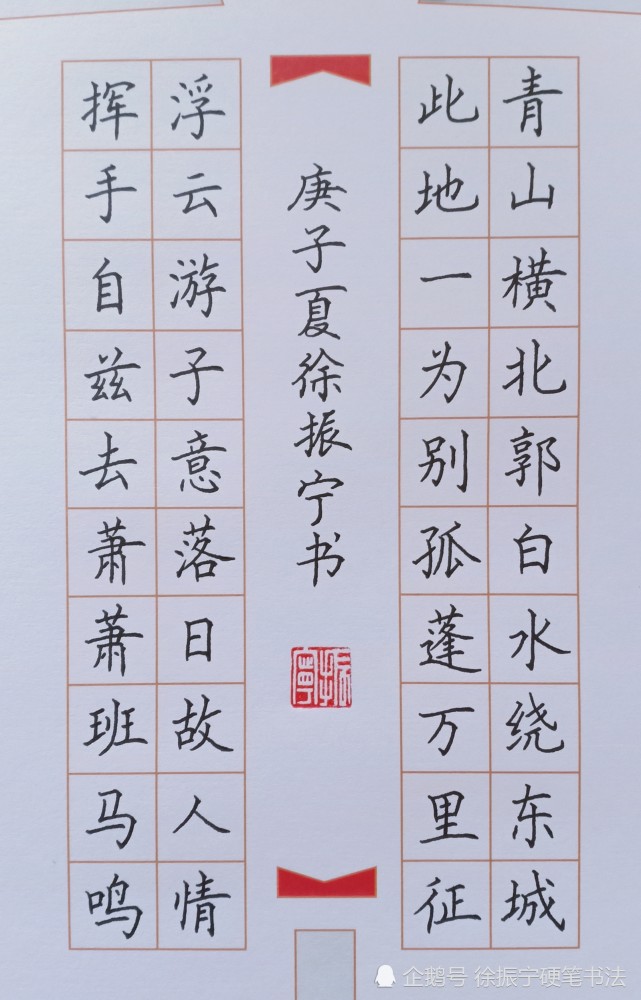 青山横北郭白水绕东城
此地一为别孤蓬万里征
庚子夏徐振宁书
振宁
浮云游子意落日故人情
挥手自兹去萧萧班马鸣
企鹅号 徐振宁硬笔书法